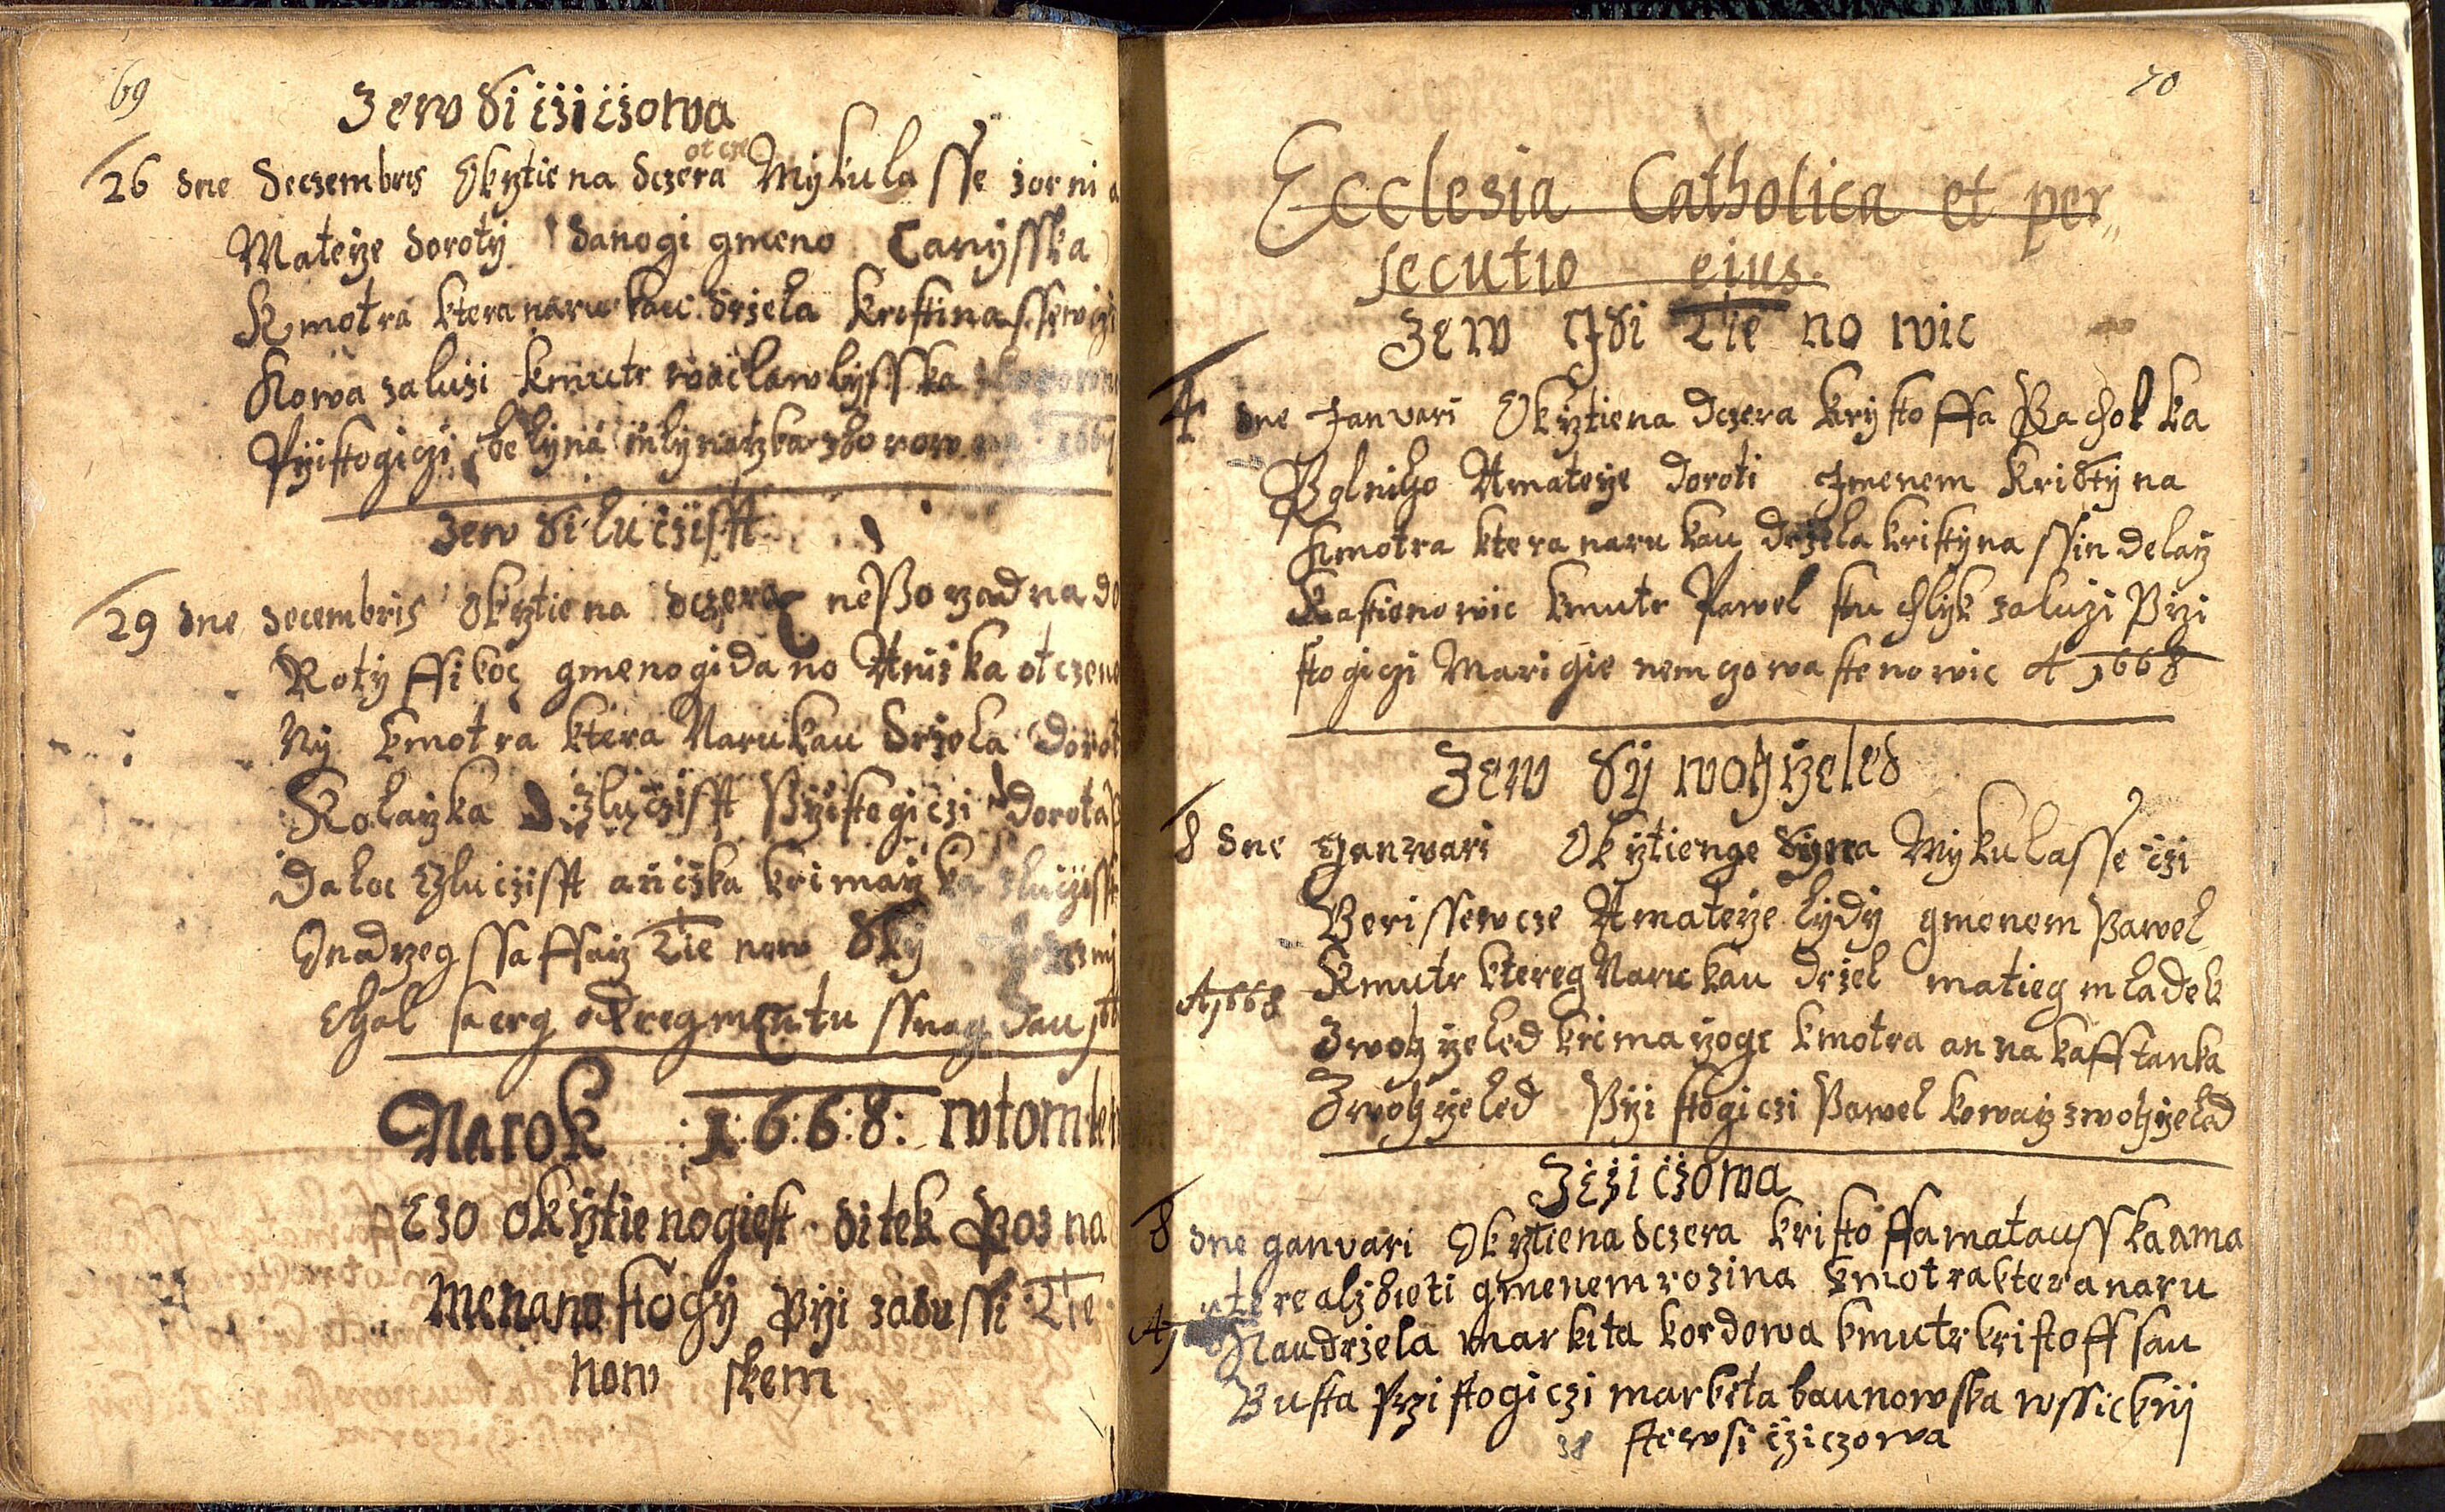 69
Zew Si cziczowa
26 dne deczembris Okrztiena dczera otcze Mykulasse zorni a
Materze doroty danogi gmeno Canysska
Kmotra ktera naru kau drzela kristina ssewczi
Kowa zaluzi kmutr waclaw lysska
Przistogiczi belyna mlynarzka zborow 1667
Zew Si luczisst
29 dne decembris Okrztiena dczera neporzadna do
Roty ssiboc gmenogidano Aniska otczene
Ny kmotra ktera Narukau drzela dorot
Kolarzka Zluczisst Przistogiczi dorota
Daloc Zluczisst anczka krimarzka zluczisst
Onadrzeg ssaffarz Tie now Sky
Chal saerg odregmentu ssnag dau
Narok :1:6:6:8: wtom le
czo okrztienogiest ditek Poz na
menano stogy przi zadussi Tie
now skem
70
Ecclesia Catholica et per„
secutio eius.
Zew Jsi Tie no wic
4 dne Januari Okrztiena dczera krystoffa Pacholka
Polniho Amaterze doroti Jmenem Kristyna
Kmotra ktera naru kau drzela kristyna ssindelarz
Kastienowic kmutr Pawel stuchlyk zaluzi Przi
stogiczi Marigie nemczowa stenowic A 1668
Zew Sy wohrzeled
8 dne Januari Okrztienge Syna Mykulasse czi
Berissewcze Amaterze lydy gmenem Pawel
Kmutr ktereg Naru kau drzel matieg mladek
A1668
Zwohrzeled krimarzoge kmotra anna kafftanka
Zwohrzeled Przi stogiczi Pawel kowarz zwohrzeled
Zcziczowa
8 dne ganuari Okrztiena dczera kristoffa matausska ama
terze alzbieti gmenem rozina kmotra ktera naru
Kau drzela markita kordowa kmutr kristoff sau
Busta Przistogiczi markita baunowska wssickni
38 stewsi cziczowa